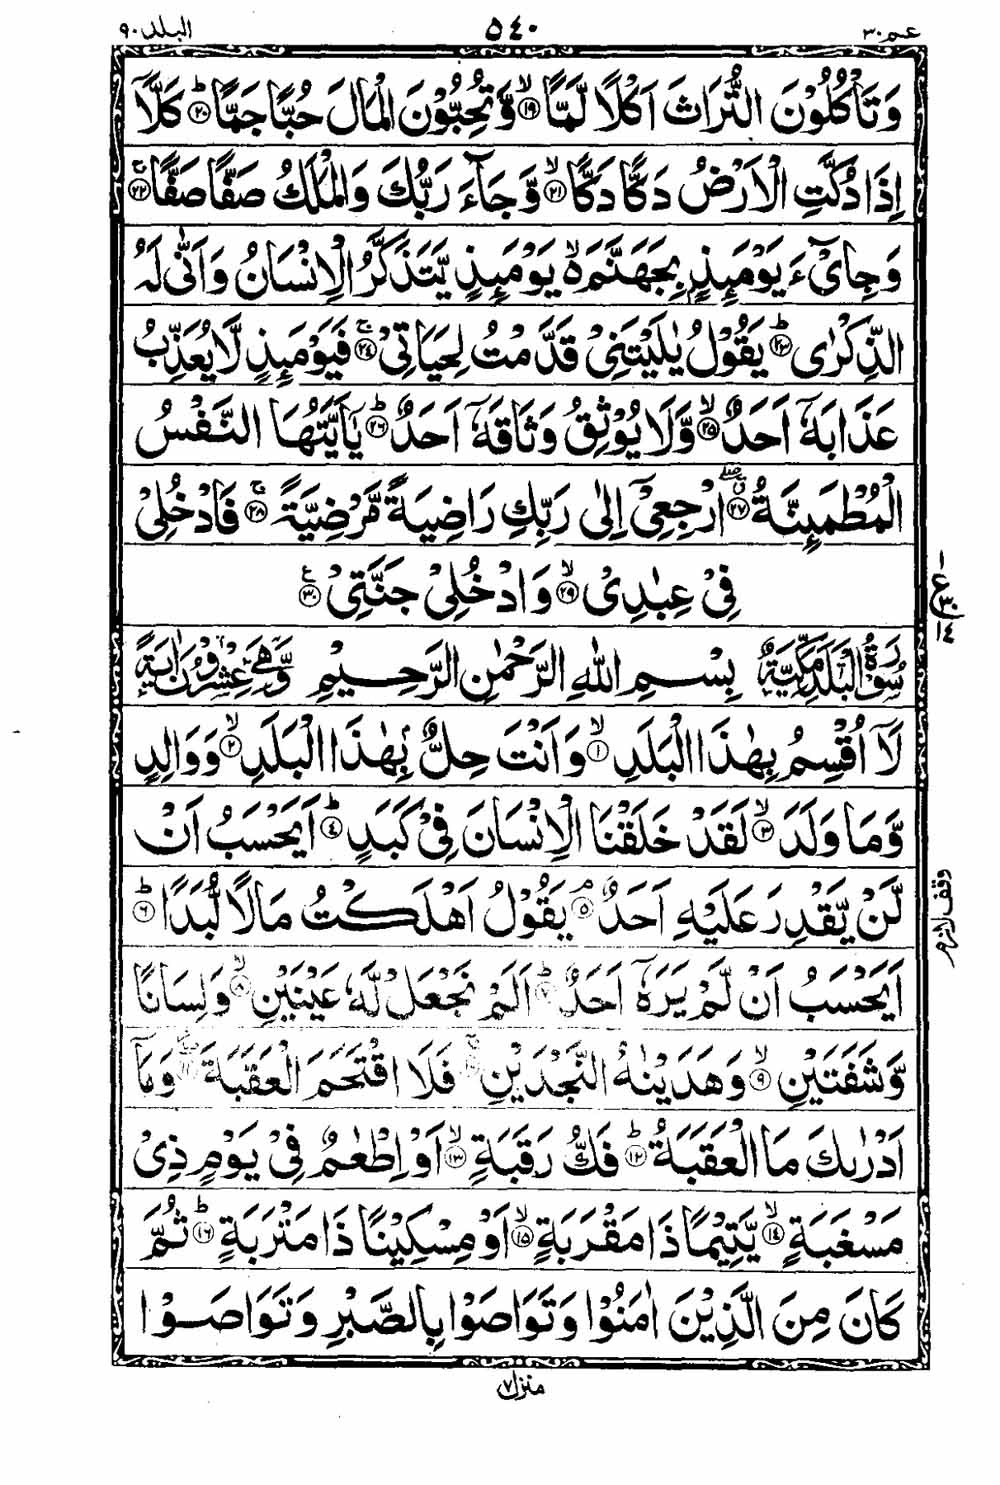 عـم ٣٠
٥٤٠
البلد ٩٠
وَتَاۡكُلُوۡنَ التُّرَاثَ اَكۡلًا لَّمًّا ۙ﴿۱۹﴾ وَّتُحِبُّوۡنَ الۡمَالَ حُبًّا جَمًّا ؕ﴿۲۰﴾ كَلَّاۤ
اِذَا دُكَّتِ الۡاَرۡضُ دَكًّا دَكًّا ۙ﴿۲۱﴾ وَّجَآءَ رَبُّكَ وَالۡمَلَكُ صَفًّا صَفًّا ۚ﴿۲۲﴾
وَجِایۡٓءَ يَوۡمَٮِٕذٍۭ بِجَهَنَّمَ ۙ۬ يَوۡمَٮِٕذٍ يَّتَذَكَّرُ الۡاِنۡسَانُ وَاَنّٰى لَهُ
الذِّكۡرٰى ؕ﴿۲۳﴾ يَقُوۡلُ يٰلَيۡتَنِىۡ قَدَّمۡتُ لِحَيَاتِىۡ ۚ﴿۲۴﴾ فَيَوۡمَٮِٕذٍ لَّا يُعَذِّبُ
عَذَابَهٗۤ اَحَدٌ ۙ﴿۲۵﴾ وَّلَا يُوۡثِقُ وَثَاقَهٗۤ اَحَدٌ ؕ﴿۲۶﴾ يٰۤاَيَّتُهَا النَّفۡسُ
الۡمُطۡمَٮِٕنَّةُ ۖ﴿۲۷﴾ ارۡجِعِىۡۤ اِلٰى رَبِّكِ رَاضِيَةً مَّرۡضِيَّةً ۚ﴿۲۸﴾ فَادۡخُلِىۡ
فِىۡ عِبٰدِىۙ‏ ﴿۲۹﴾ وَادۡخُلِىۡ جَنَّتِىۡ ﴿۳۰﴾ ع
سُوۡرَةُ الۡبَلَدِ مَكِّيَّةٌ بِسۡمِ اللّٰهِ الرَّحۡمٰنِ الرَّحِيۡمِ وَّهِىَ عِشۡرُوۡنَ اٰيَةً
لَاۤ اُقۡسِمُ بِهٰذَا الۡبَلَدِ ۙ﴿۱﴾ وَاَنۡتَ حِلٌّۢ بِهٰذَا الۡبَلَدِ ۙ﴿۲﴾ وَوَالِدٍ
وَّمَا وَلَدَ ۙ﴿۳﴾ لَقَدۡ خَلَقۡنَا الۡاِنۡسَانَ فِىۡ كَبَدٍ ؕ﴿۴﴾ اَيَحۡسَبُ اَنۡ
لَّنۡ يَّقۡدِرَ عَلَيۡهِ اَحَدٌ ۘ﴿۵﴾ يَقُوۡلُ اَهۡلَكۡتُ مَالًا لُّبَدًا ؕ﴿۶﴾
اَيَحۡسَبُ اَنۡ لَّمۡ يَرَهٗۤ اَحَدٌ ؕ﴿۷﴾ اَلَمۡ نَجۡعَلۡ لَّهٗ عَيۡنَيۡنِ ۙ﴿۸﴾ وَلِسَانًا
وَّشَفَتَيۡنِ ۙ﴿۹﴾ وَهَدَيۡنٰهُ النَّجۡدَيۡنِ ۚ﴿۱۰﴾ فَلَا اقۡتَحَمَ الۡعَقَبَةَ ۖ﴿۱۱﴾ وَمَاۤ
اَدۡرٰٮكَ مَا الۡعَقَبَةُ ؕ﴿۱۲﴾ فَكُّ رَقَبَةٍ ۙ﴿۱۳﴾ اَوۡ اِطۡعٰمٌ فِىۡ يَوۡمٍ ذِىۡ
مَسۡغَبَةٍ ۙ﴿۱۴﴾ يَّتِيۡمًا ذَا مَقۡرَبَةٍ ۙ﴿۱۵﴾ اَوۡ مِسۡكِيۡنًا ذَا مَتۡرَبَةٍ ؕ﴿۱۶﴾ ثُمَّ
كَانَ مِنَ الَّذِيۡنَ اٰمَنُوۡا وَتَوَاصَوۡا بِالصَّبۡرِ وَتَوَاصَوۡا
ع ٣٠ ١٤
وقف لازم
منزل ٧